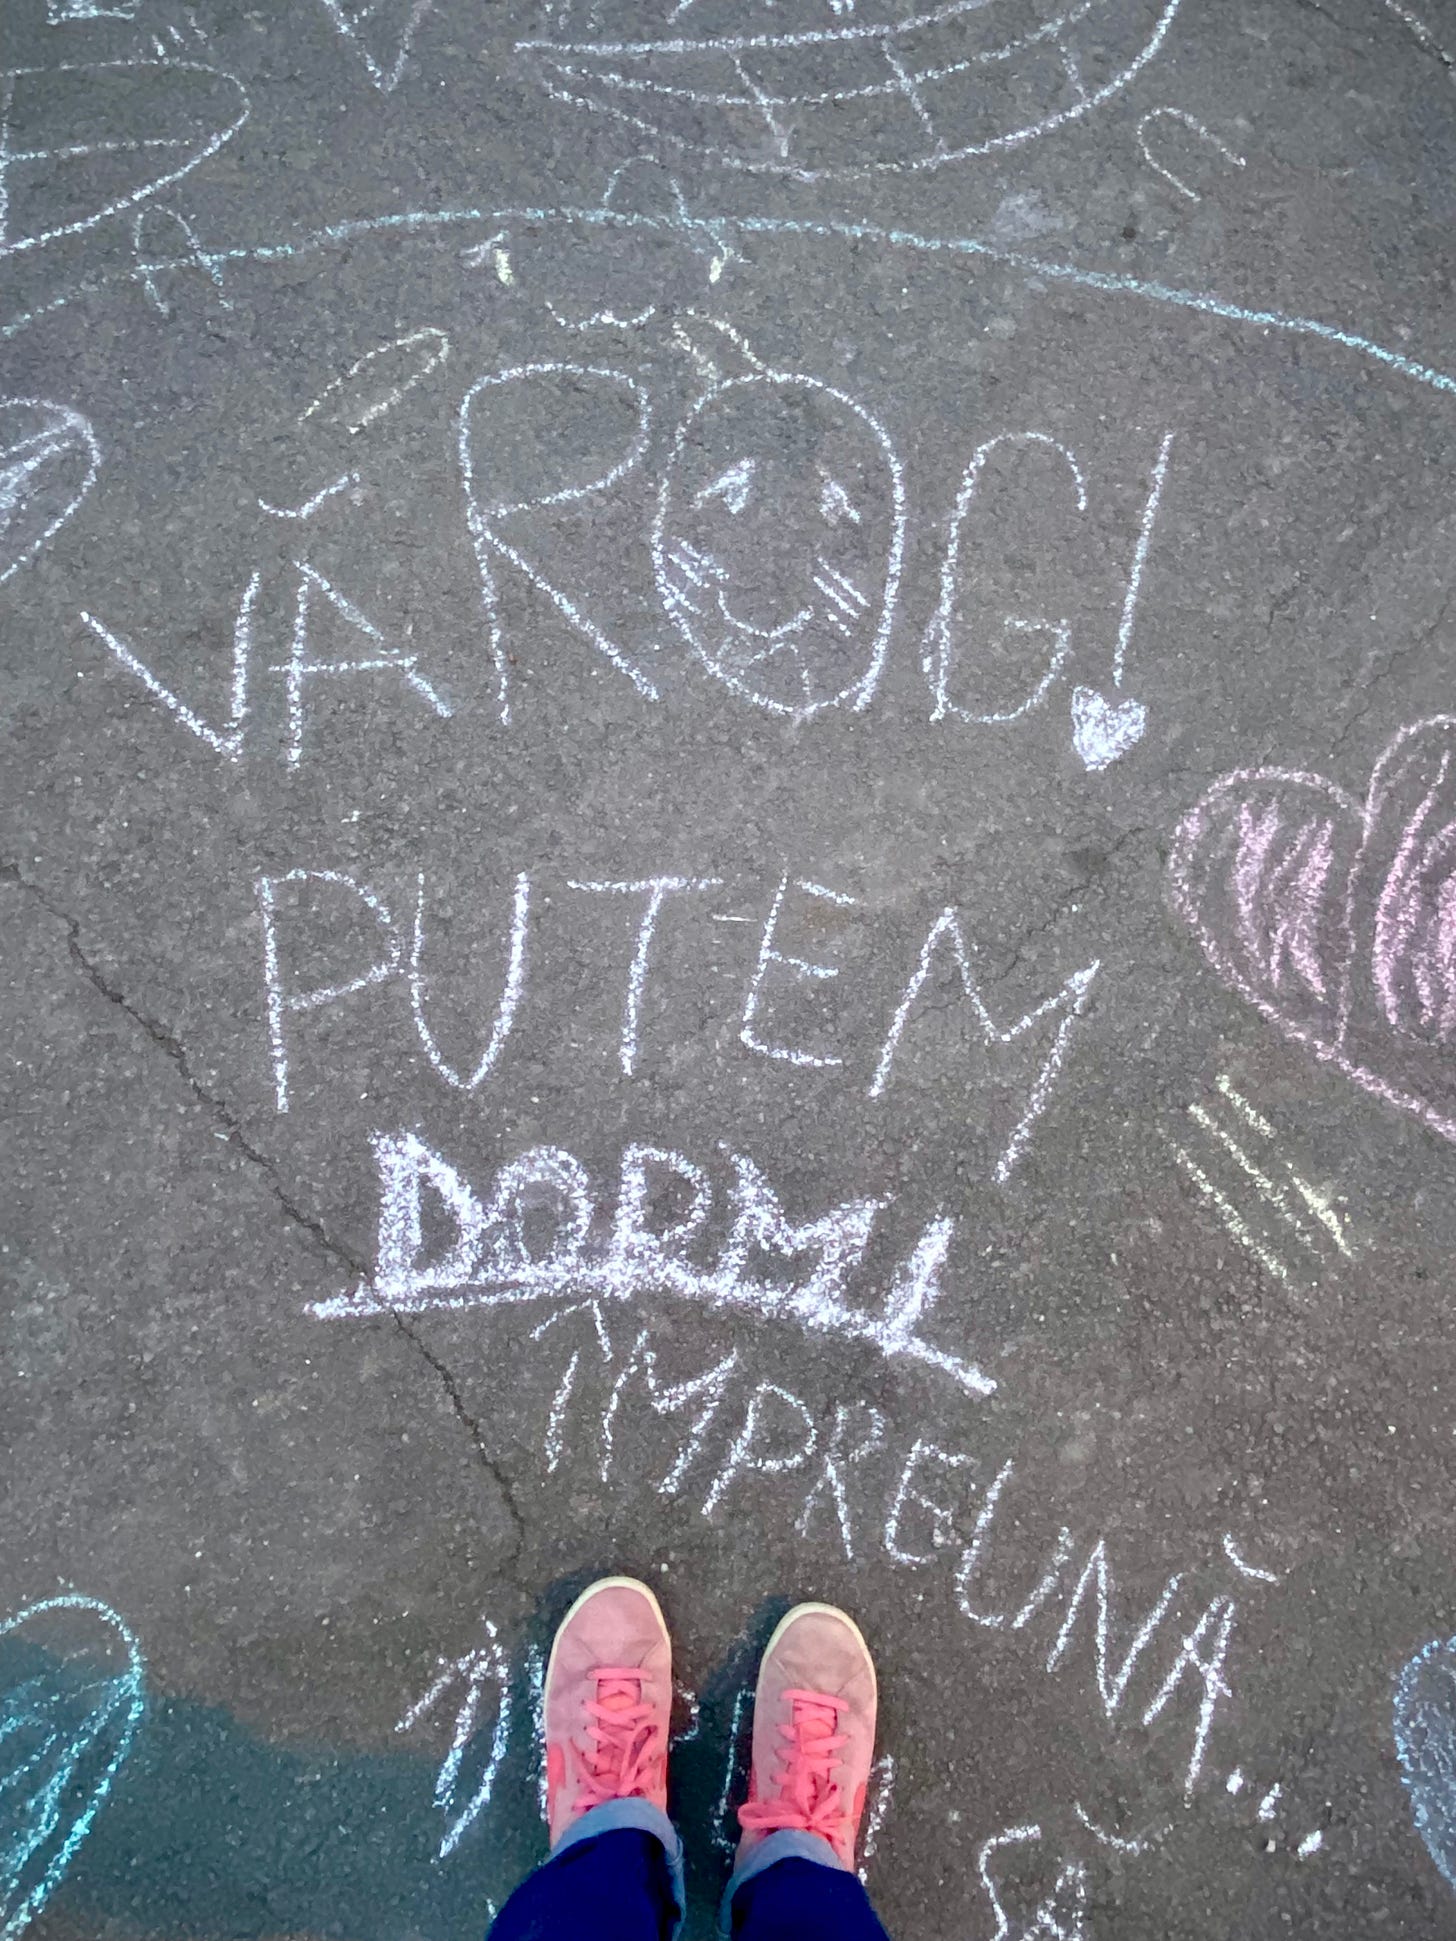 VĂ ROG!
PUTEM
DORMI
ÎMPREUNĂ...